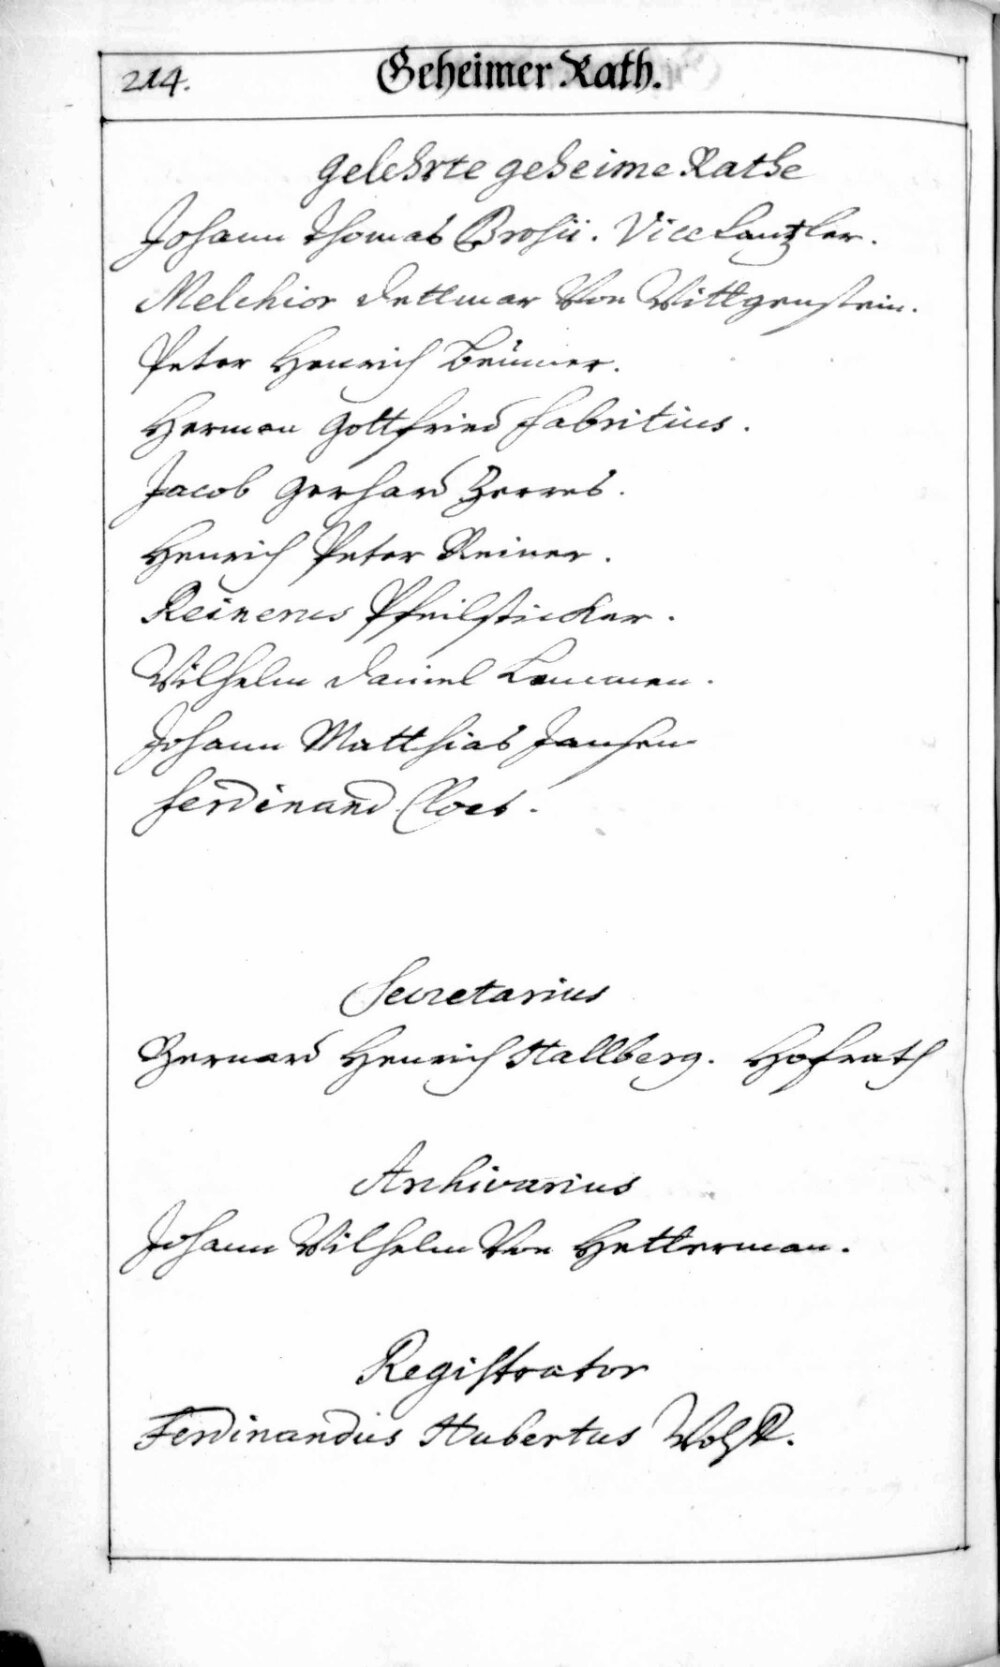 214.
Geheimer Rath.
gelehrte geheime Rathe
Johann Thomas Brosii. Vice Cantzler.
Melchior Dettmar Von Wittgenstein.
Peter Henrich Brünner.
Herman Gottfried Fabritius.
Jacob Gerhard Zerres.
Henrich Peter Reiner.
Reinerus Pfeilsticker.
Wilhelm Daniel Lemmen.
Johann Matthias Jansen
Ferdinand Cloes.
Secretarius
Bernard Henrich Hallberg. Hofrath
Archivarius
Johann Wilhelm Von Hetterman.
Registrator
Ferdinandus Hubertus